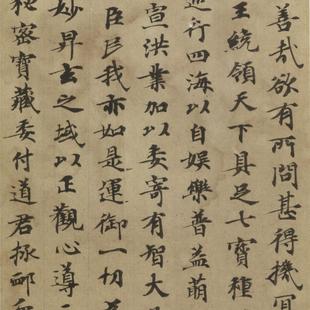 善哉欲有所問甚得機冝
王統領天下具足七寳種
遊行四海以自娛樂普益萌
宣洪業加以委寄有智大
臣民我亦如是運御一切
妙昇玄之域以正觀心導
秘密寶藏委付道君拯